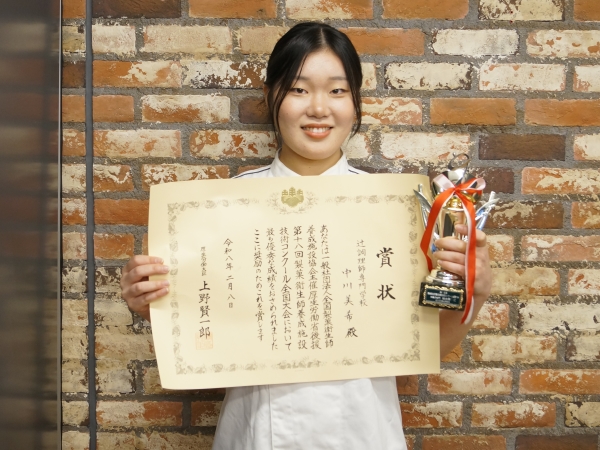 賞状
辻調理師専門学校
中川美希殿
あなたは一般社団法人全国製菓衛生師
養成施設協会主催厚生労働省後援
第十八回製菓衛生師養成施設
技術コンクール全国大会において
最も優秀な成績をおさめられました
ここに奨励のためこれを賞します
令和八年二月八日
厚生労働大臣
上野賢一郎